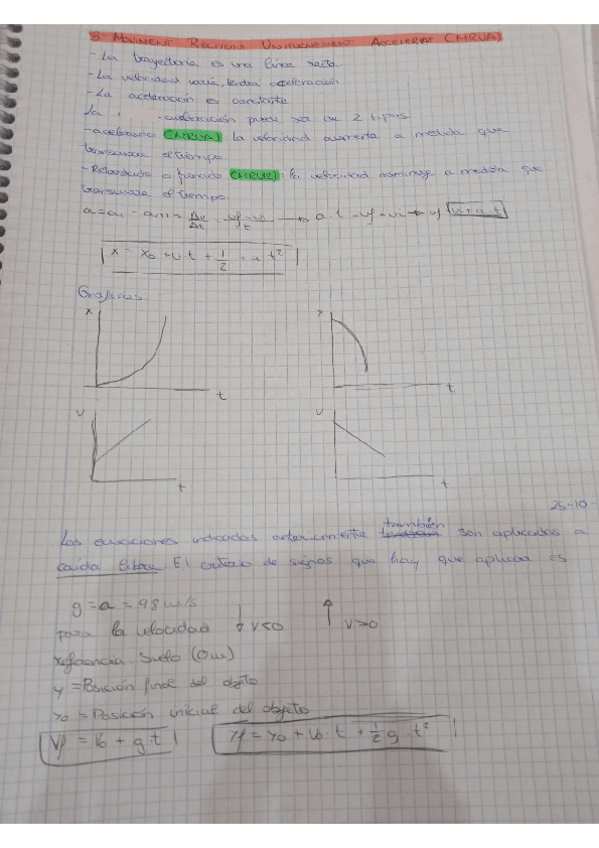 3- MOVIMENT RECTILINI UNIFORMEMENT ACCELERAT (MRUA)
- La trayectoria es una línea recta.
- La velocidad varia, tendrá aceleración
- La aceleración es constante
La - aceleración puede ser de 2 tipos
- acelerado (MRUA): la velocidad aumenta a medida que
transcurre el tiempo
- Retardado o frenado (MRUR): la velocidad disminuye a medida que
transcurre el tiempo
a = am = Δv/Δt = vf - vi / t → a · t = vf - vi → vf = vi + a · t
x = x0 + v · t + 1/2 · a t²
Graficas
x x
t t
v v
t t
25-10-
también
Las ecuaciones indicadas anteriormente son aplicadas a
caída libre. El criterio de signos que hay que aplicar es
g = a = 9'8 m/s
para la velocidad ↓ v<0 ↑ v>0
referencia suelo (0m)
y = Posición final del objeto
y0 = Posición inicial del objeto
Vf = V0 + g · t
Yf = Y0 + V0 · t + 1/2 g · t²